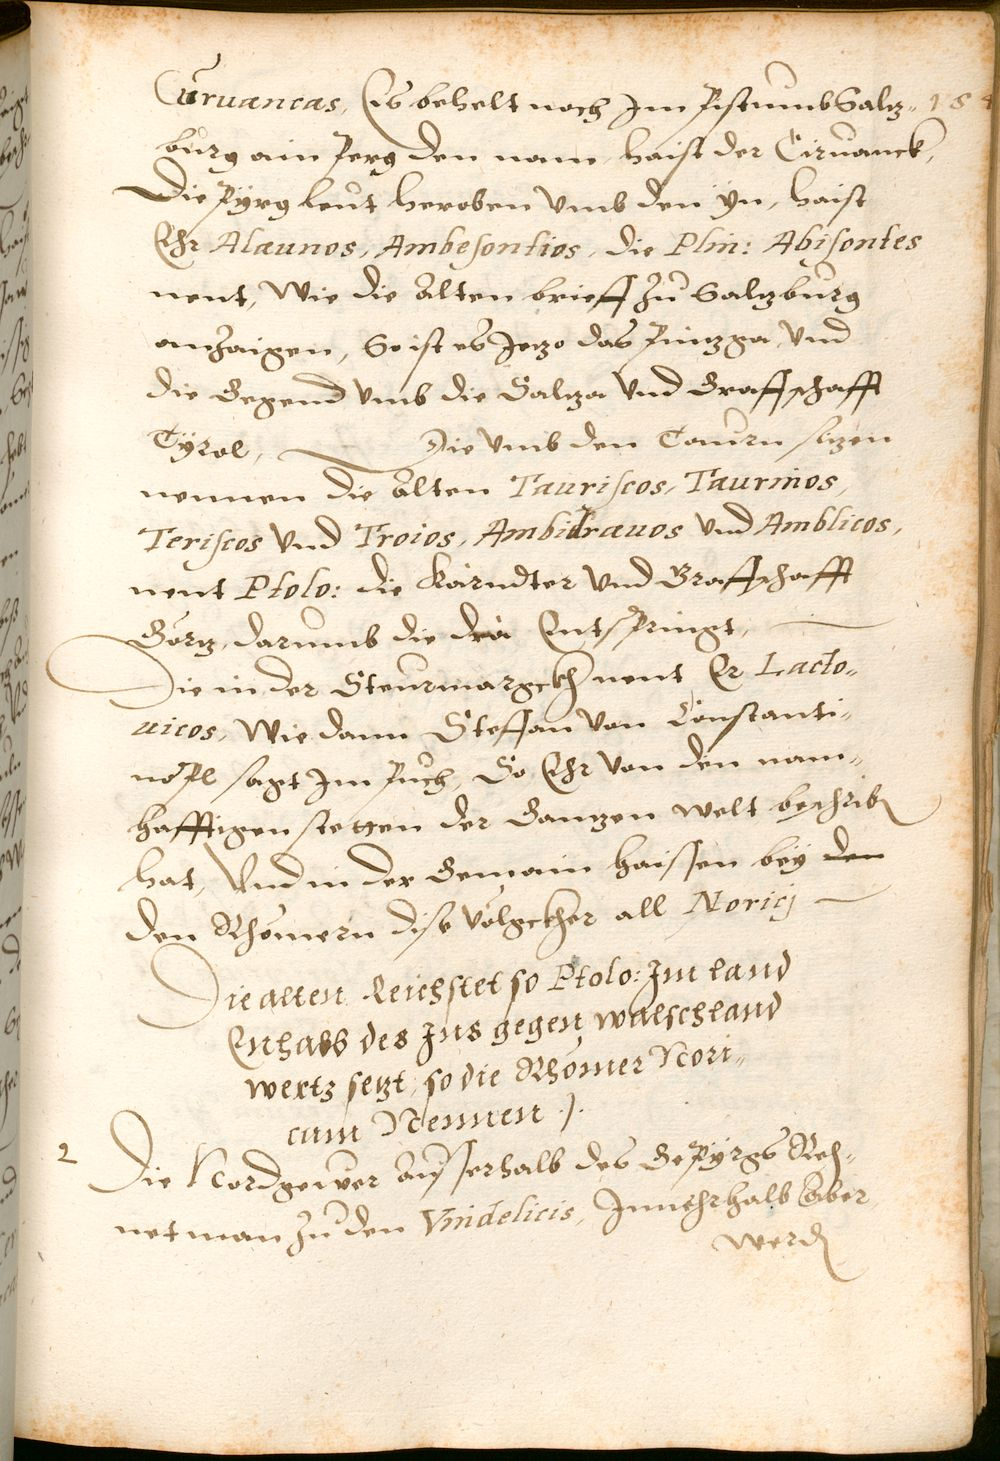 Curuancas, Es behelt noch Im Pistumb Saltz- 184
burg ain Perg den name, haist der Ciruanck,
Die Pÿrg leut heroben vmb den Yn, haist
Ehr Alaunos, Ambesontios, die Plin: Abisontes
nent, Wie die alten brieff zu Saltzburg
anzaigen, So ist es Jetzo das Pintzga, Vnd
die Gegend vmb die Saltza Vnd Graffschafft
Tÿrol, Die vmb den Taurn sitzen
nennen die alten Tauriscos, Taurinos,
Teriscos Vnd Troios, Ambidrauos Vnd Amblicos,
nent Ptolo: die Kärndter Vnd Graffschafft
Görtz, darumb die dra Entspringt,
Die in der Steurmargckh nent Er Lacto-
uicos, Wie dann Steffan Von Constanti-
nopl sagt Im Puch, So Ehr Von den nam-
hafftigen stetten der Gantzen Welt beschribn
hat, Vnd in der Gemain haissen beÿ den
den Rhömern dise Völgckher all Noricj
Die alten Reichstet so Ptolo: Im land
Enhalb des Ins gegen walschland
wertz setzt, so die Rhömer Nori-
cum Nennen).
2 Die Nordgewer ausserhalb des Gepÿrgs Rech-
net man zu den Vindelicis, Innerhalb aber
werdn